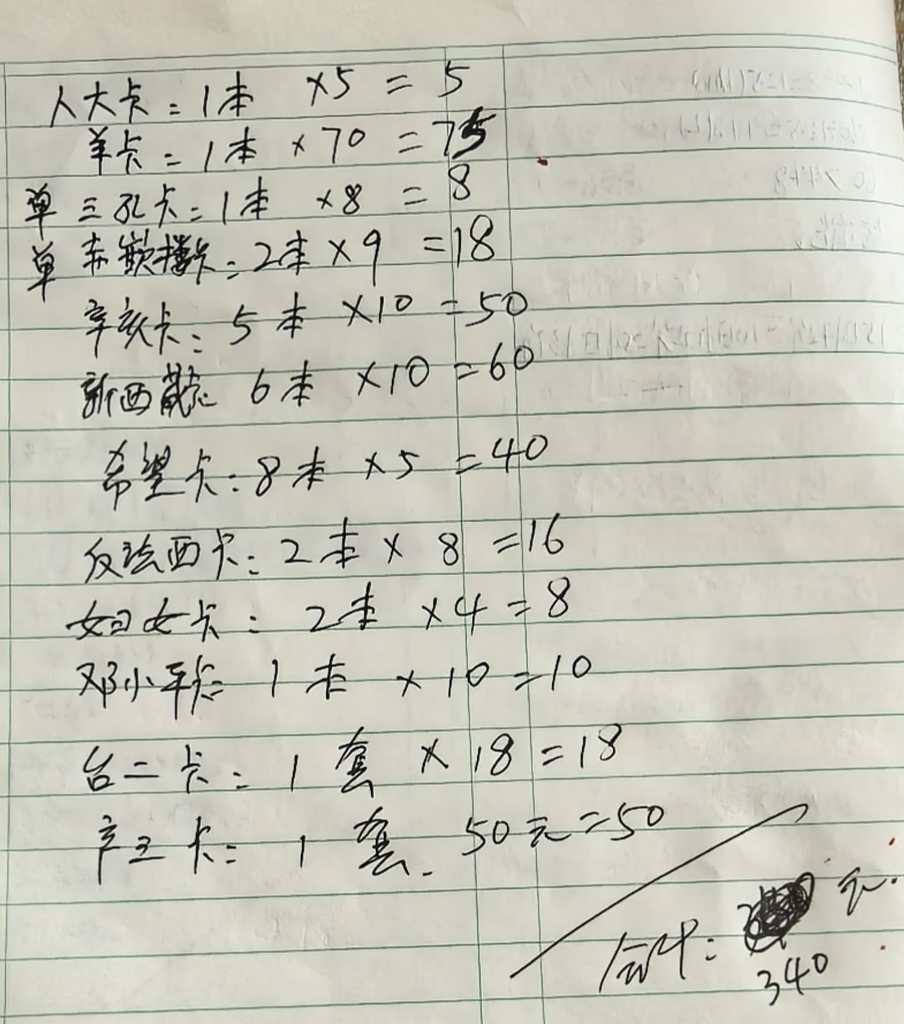 人大卡：1本 ×5 = 5
羊卡：1本 ×70 = 75
单三孔卡：1本 ×8 = 8
单 卡：2本×9 =18
辛亥卡：5本 ×10 =50
新西藏 6本 ×10 =60
希望卡：8本 ×5 =40
反法西卡：2本× 8 =16
妇女卡：2本 ×4=8
邓小平卡 1本 ×10=10
台二卡：1套 ×18=18
辛卡：1套. 50元=50
合计： 元.
340